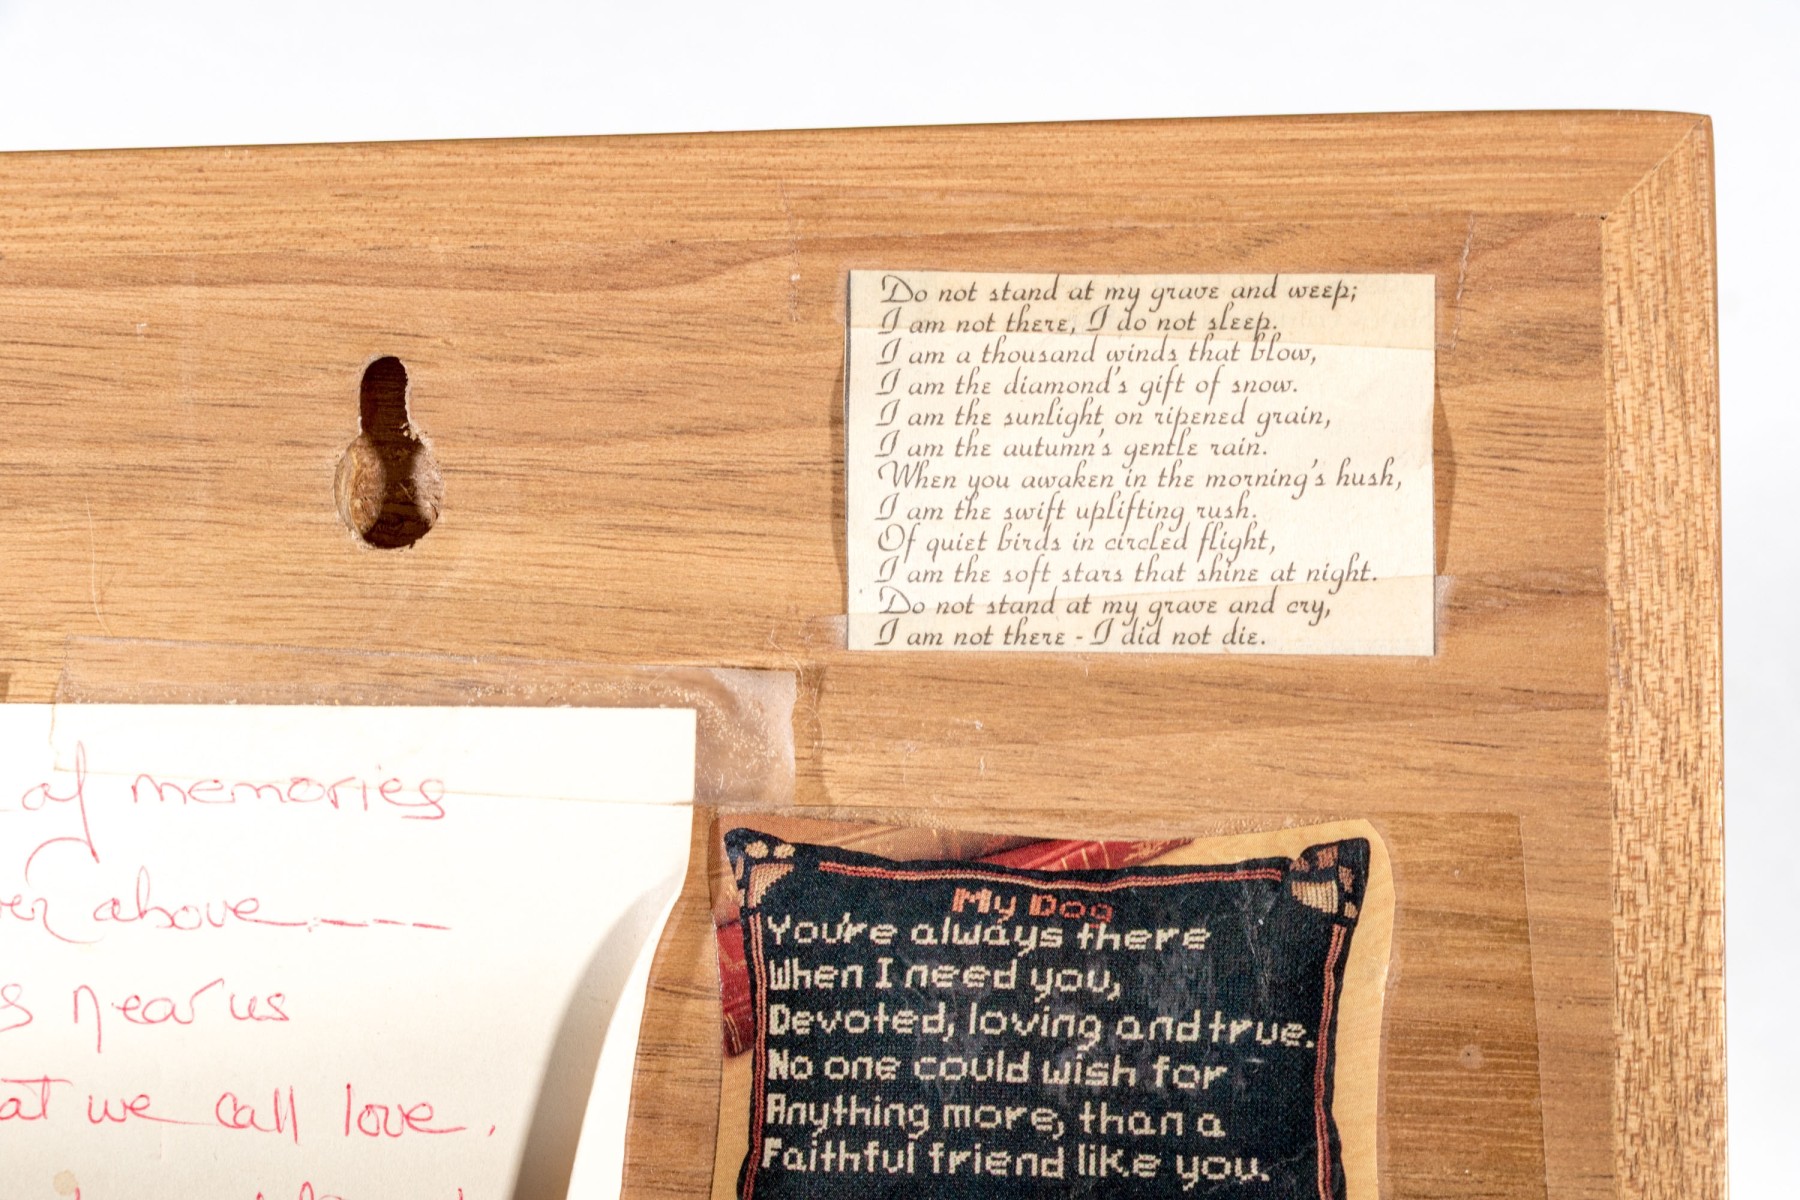 Do not stand at my grave and weep;
I am not there, I do not sleep.
I am a thousand winds that blow,
I am the diamond's gift of snow.
I am the sunlight on ripened grain,
I am the autumn's gentle rain.
When you awaken in the morning's hush,
I am the swift uplifting rush.
Of quiet birds in circled flight,
I am the soft stars that shine at night.
Do not stand at my grave and cry,
I am not there - I did not die.
of memories
above----
near us
we call love.
My Dog
You're always there
When I need you,
Devoted, loving and true.
No one could wish for
Anything more, than a
Faithful friend like you.